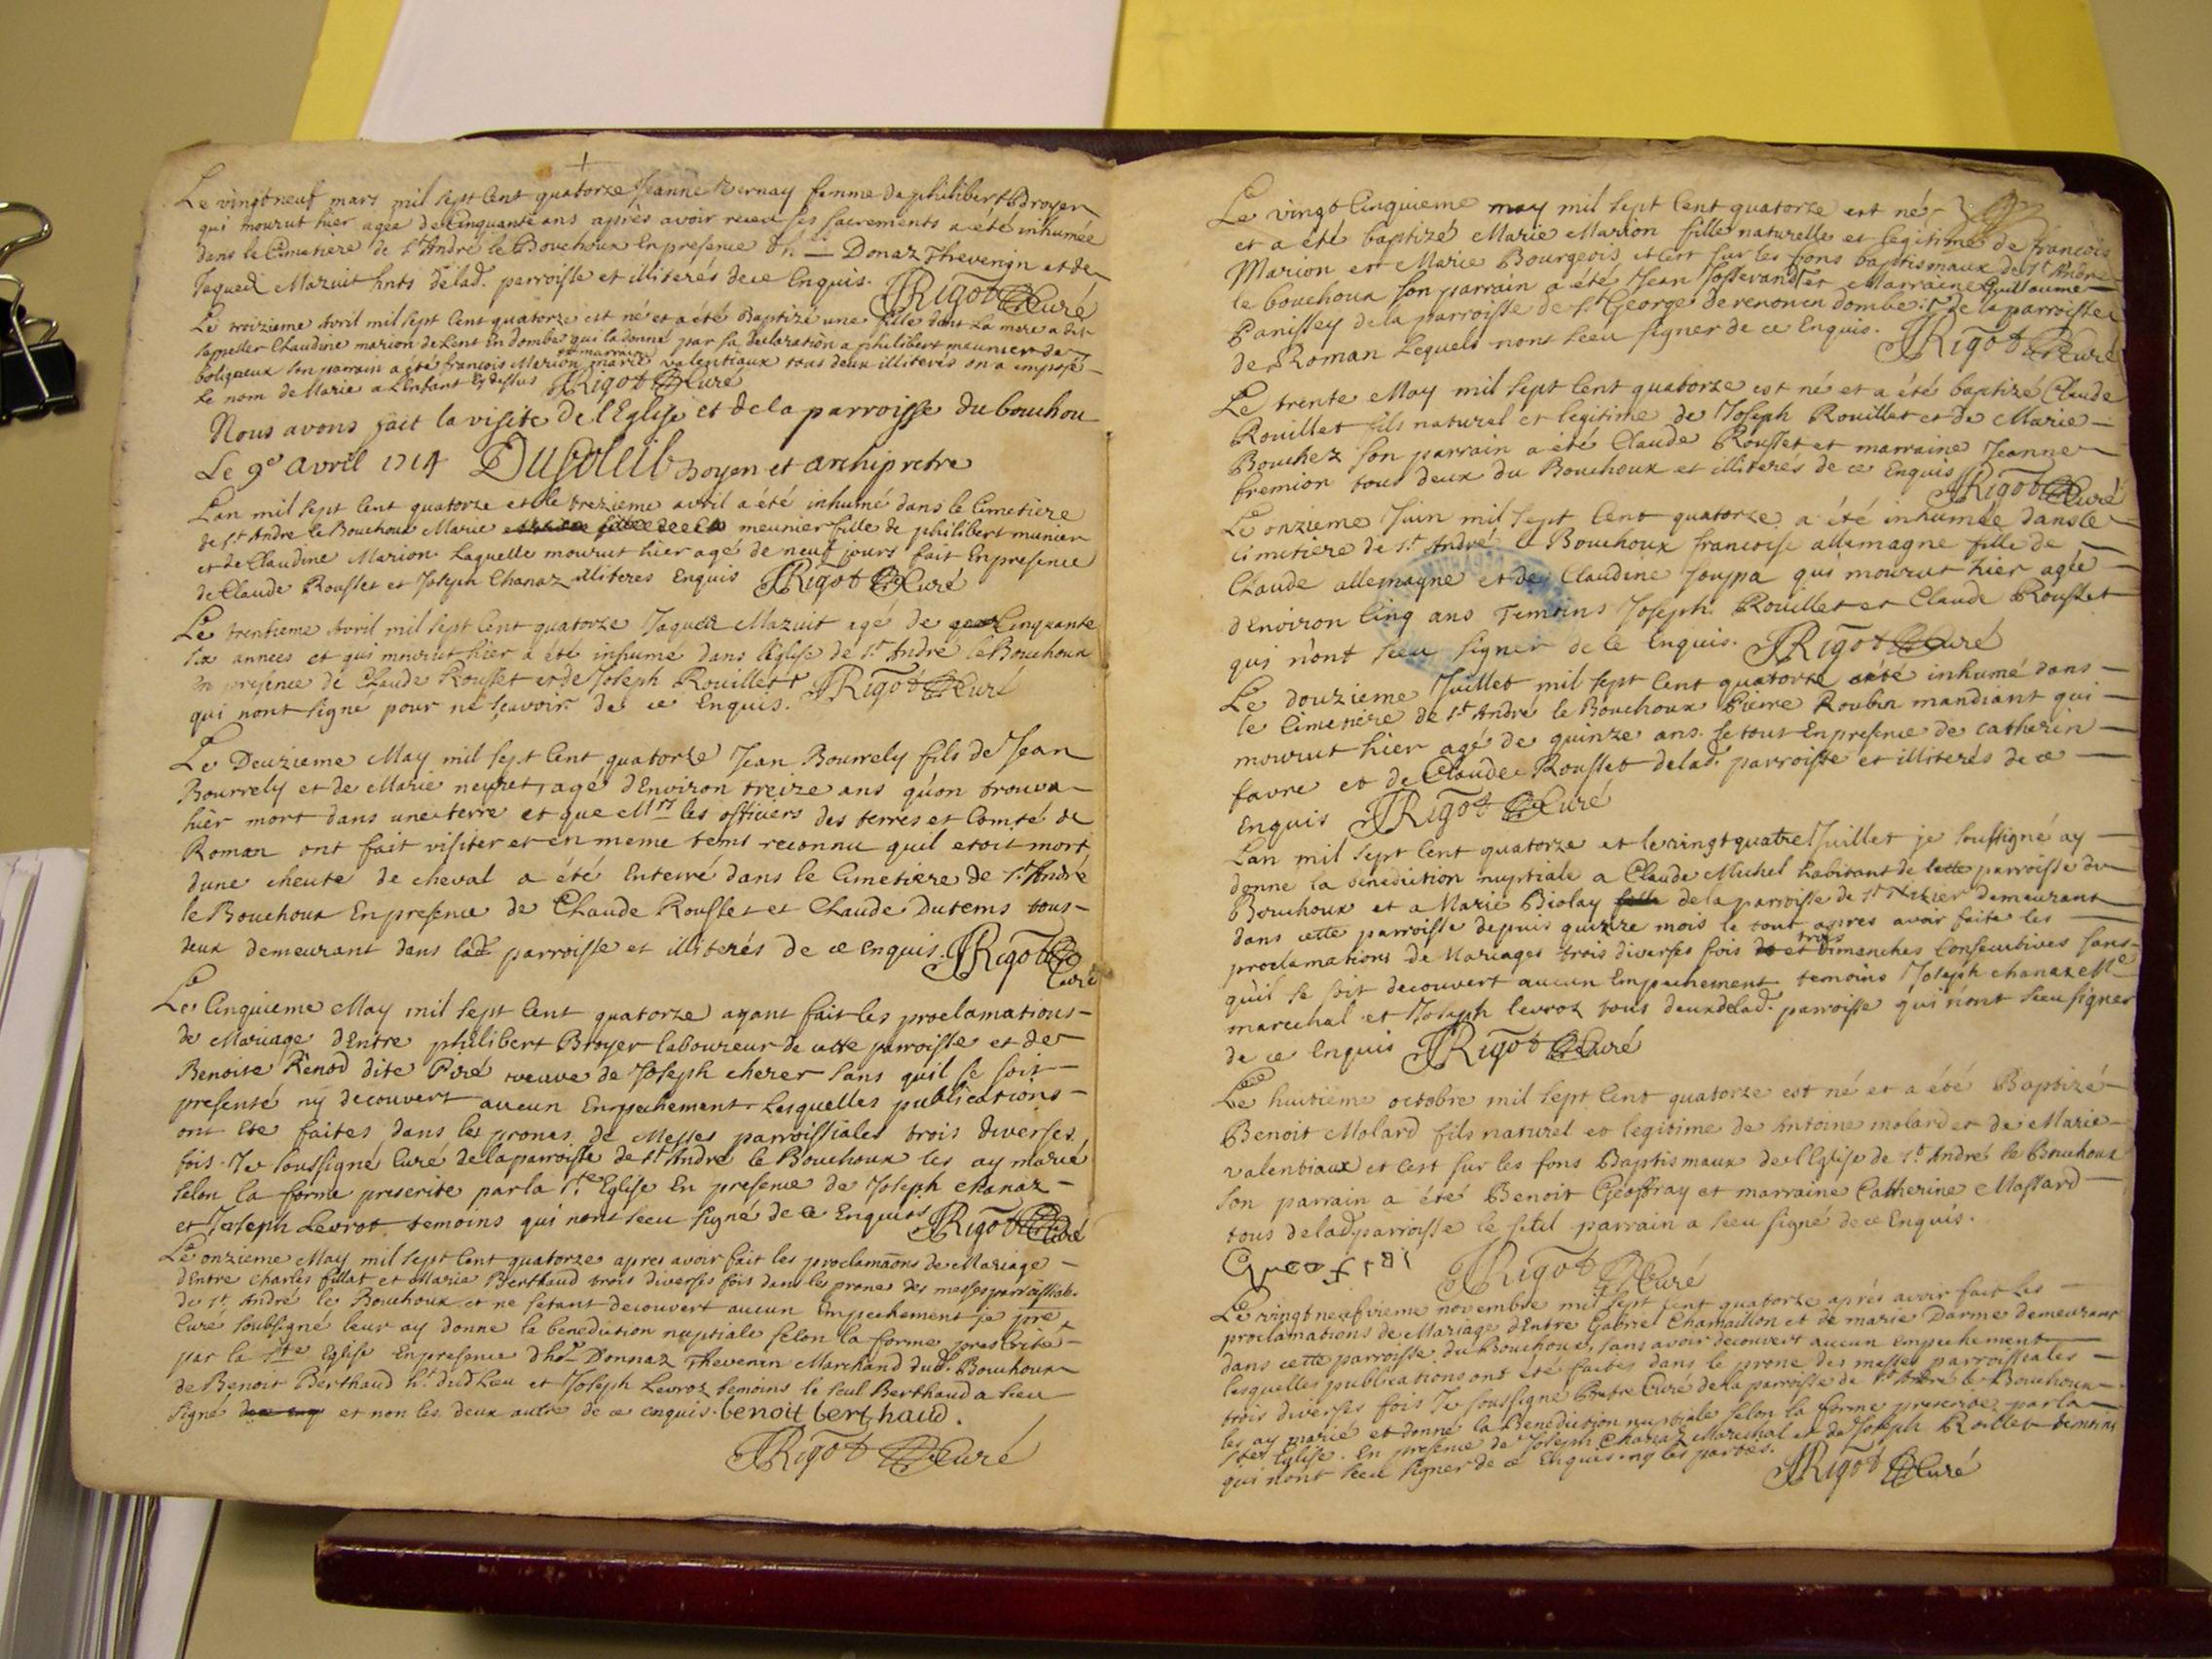 Le vingt neuf mars mil sept Cent quatorze Jeanne Vernay femme de philibert Broyer
qui mourut hier agéa de Cinquante ans aprés avoir receu ses sacrements a été inhumée
dans le Cimetiere de St André le Bouchoux En presence Donaz Thevenin et de
Jaques Mazuit hnts delad. parroisse et illiterés de ce Enquis. JRigot Curé
Le troizieme Avril mil sept Cent quatorze est né et a été Baptizé une fille dont la mere a dit
sappeller Claudine marion de Lent En dombe qui la donné par sa declaration a philibert meunier de
boligneux son parrain a été francois Merion et marraine marie valentiaux tous deux illiterés on a imposé
le nom de Marie a L'Enfant Cy dessus JRigot Curé
Nous avons fait la visite de l'Eglise et de la parroisse du bouchou
Le 9e avril 1714 Dusoleil Doyen et archipretre
L'an mil sept Cent quatorze et le treizieme avril a été inhumé dans le Cimetiere
de St André le Bouchoux Marie meunier fille de philibert munier
et de Claudine Marion laquelle mourut hier agé de neuf jours fait En presence
de Claude Rousset et Joseph Chanaz illiteres Enquis JRigot Curé
Le trentieme Avril mil sept Cent quatorze Jaques Mazuit agé de Cinquante
six années et qui mourut hier a été inhumé dans l'Eglise de St André le Bouchoux
en presence de Claude Rousset et de Joseph Rouillet JRigot Curé
qui n'ont signé pour ne sçavoir de ce Enquis.
Le Deuzieme May mil sept Cent quatorze Jean Bourrely fils de Jean
Bourrely et de Marie neyret, agé d'Environ treize ans qu'on trouva
hier mort dans une terre et que Mrs les officiers des terres et Comté de
Roman ont fait visiter et en meme tems reconnu quil etoit mort
dune cheute de cheval a été Enterré dans le Cimetiere de St André
le Bouchoux En presence de Claude Rousset et Claude Dutems tous
deux demeurant dans lade parroisse et illiterés de ce enquis. JRigot
Curé
Le Cinquieme May mil sept Cent quatorze ayant fait les proclamations
de Mariage d'Entre philibert Broyer laboureur de cette parroisse et de
Benoite Renod dite Piré veuve de Joseph cherer sans qu'il se soit
presenté ny decouvert aucun Empechement lesquelles publications
ont eté faites dans les prones de Messes parroissiales trois diverses
fois. Je soussigné Curé de la parroisse de St André le Bouchoux les ay marié
selon la forme prescrite par la Ste Eglise En presence de Joseph chanaz
et Joseph Levrot temoins qui n'ont sceu signé de ce Enquis JRigot Curé
Le onzieme May mil sept Cent quatorze apres avoir fait les proclamaons de Mariage
d'Entre charles fillat et Marie Berthaud trois diverses fois dans les prone des messes parroissiales
de St André le Bouchoux et ne setant decouvert aucun Empechement je pre
Curé soubsigné leur ay donne la benediction nuptiale selon la forme prescrite
par la Ste Eglise En presence Donnaz Thevenin Marchand dud. Bouchoux
de Benoit Berthaud ht dud Lieu et Joseph Levroz temoins le seul Berthaud a sceu
signé et non les deux autre de ce enquis. benoit berthaud.
JRigot Curé
Le vingt Cinquieme may mil sept Cent quatorze est né
et a été baptizé Marie Marion fille naturelle et legitime de francois
Marion et Marie Bourgeois, et c'est sur les fons baptismaux de St André
le bouchoux son parrain a été Jean Josserand et Marraine Guillaume
Panissey de la parroisse de St George de renon en dombe et de la parroisse
de Roman Lequels n'ont sceu signer de ce Enquis. JRigot Curé
Le trente May mil sept Cent quatorze est né et a été baptizé Claude
Rouillet fils naturel et legitime de Joseph Rouillet et de Marie
Bouchez son parrain a été Claude Rousset et marraine Jeanne
fremion tous deux du Bouchoux et illiterés de ce Enquis JRigot Curé
Le onzieme Juin mil sept Cent quatorze a été inhumée dans le
cimitiere de St André le Bouchoux francoise allemagne fille de
Claude allemagne et de Claudine Joupa qui mourut hier agée
d'Environ Cinq ans Temoins Joseph Rouillet et Claude Rousset
qui n'ont sceu signer de ce Enquis. JRigot Curé
Le douzieme Juillet mil sept Cent quatorze a été inhumé dans
le Cimetiere de St André le Bouchoux Pierre Roubin mandiant qui
mourut hier agé de quinze ans. le tout En presence de catherin
favre et de Claude Rousset delad. parroisse et illiterés de ce
Enquis JRigot Curé
L'an mil sept Cent quatorze et le vingt quatre Juillet je soussigné ay
donné la benediction nuptiale a Claude Michel habitant de cette parroisse du
Bouchoux et a Marie Biolay de la parroisse de St Nizier demeurant
dans cette parroisse depuis quinze mois le tout apres avoir faite les
proclamations de Mariages trois diverses fois et trois dimenches Consecutives sans
qu'il se soit decouvert aucun Empechement temoins Joseph chanaz Me
marechal et Joseph levroz tous deux delad. parroisse qui n'ont sceu signer
de ce Enquis JRigot Curé
Le huitieme octobre mil sept Cent quatorze est né et a été Baptizé
Benoit Molard fils naturel et legitime de Antoine molard et de Marie
valentiaux et c'est sur les fons Baptismaux de l'Eglise de St André le Bouchoux
son parrain a été Benoit Geoffray et marraine Catherine Massard
tous delad parroisse le seul parrain a sceu signé de ce Enquis.
JRigot Curé
Le vingt neufvieme novembre mil sept Cent quatorze aprés avoir fait les
proclamations de Mariage d'Entre Gabriel Chamaillon et de marie Darme demeurant
dans cette parroisse du Bouchoux, sans avoir decouvert aucun empechement
lesquelles publications ont été faites dans le prone des messes parroissiales
trois diverses fois Je soussigné Pretre Curé de la parroisse de St Andre le Bouchoux
les ay marié et donné la Benediction nuptiale selon la forme prescrite par la
Ste Eglise. En presence de Joseph Chanaz Marechal et de Joseph Roillet temoins
qui n'ont sceu signer de ce Enquis ny les parties. JRigot Curé